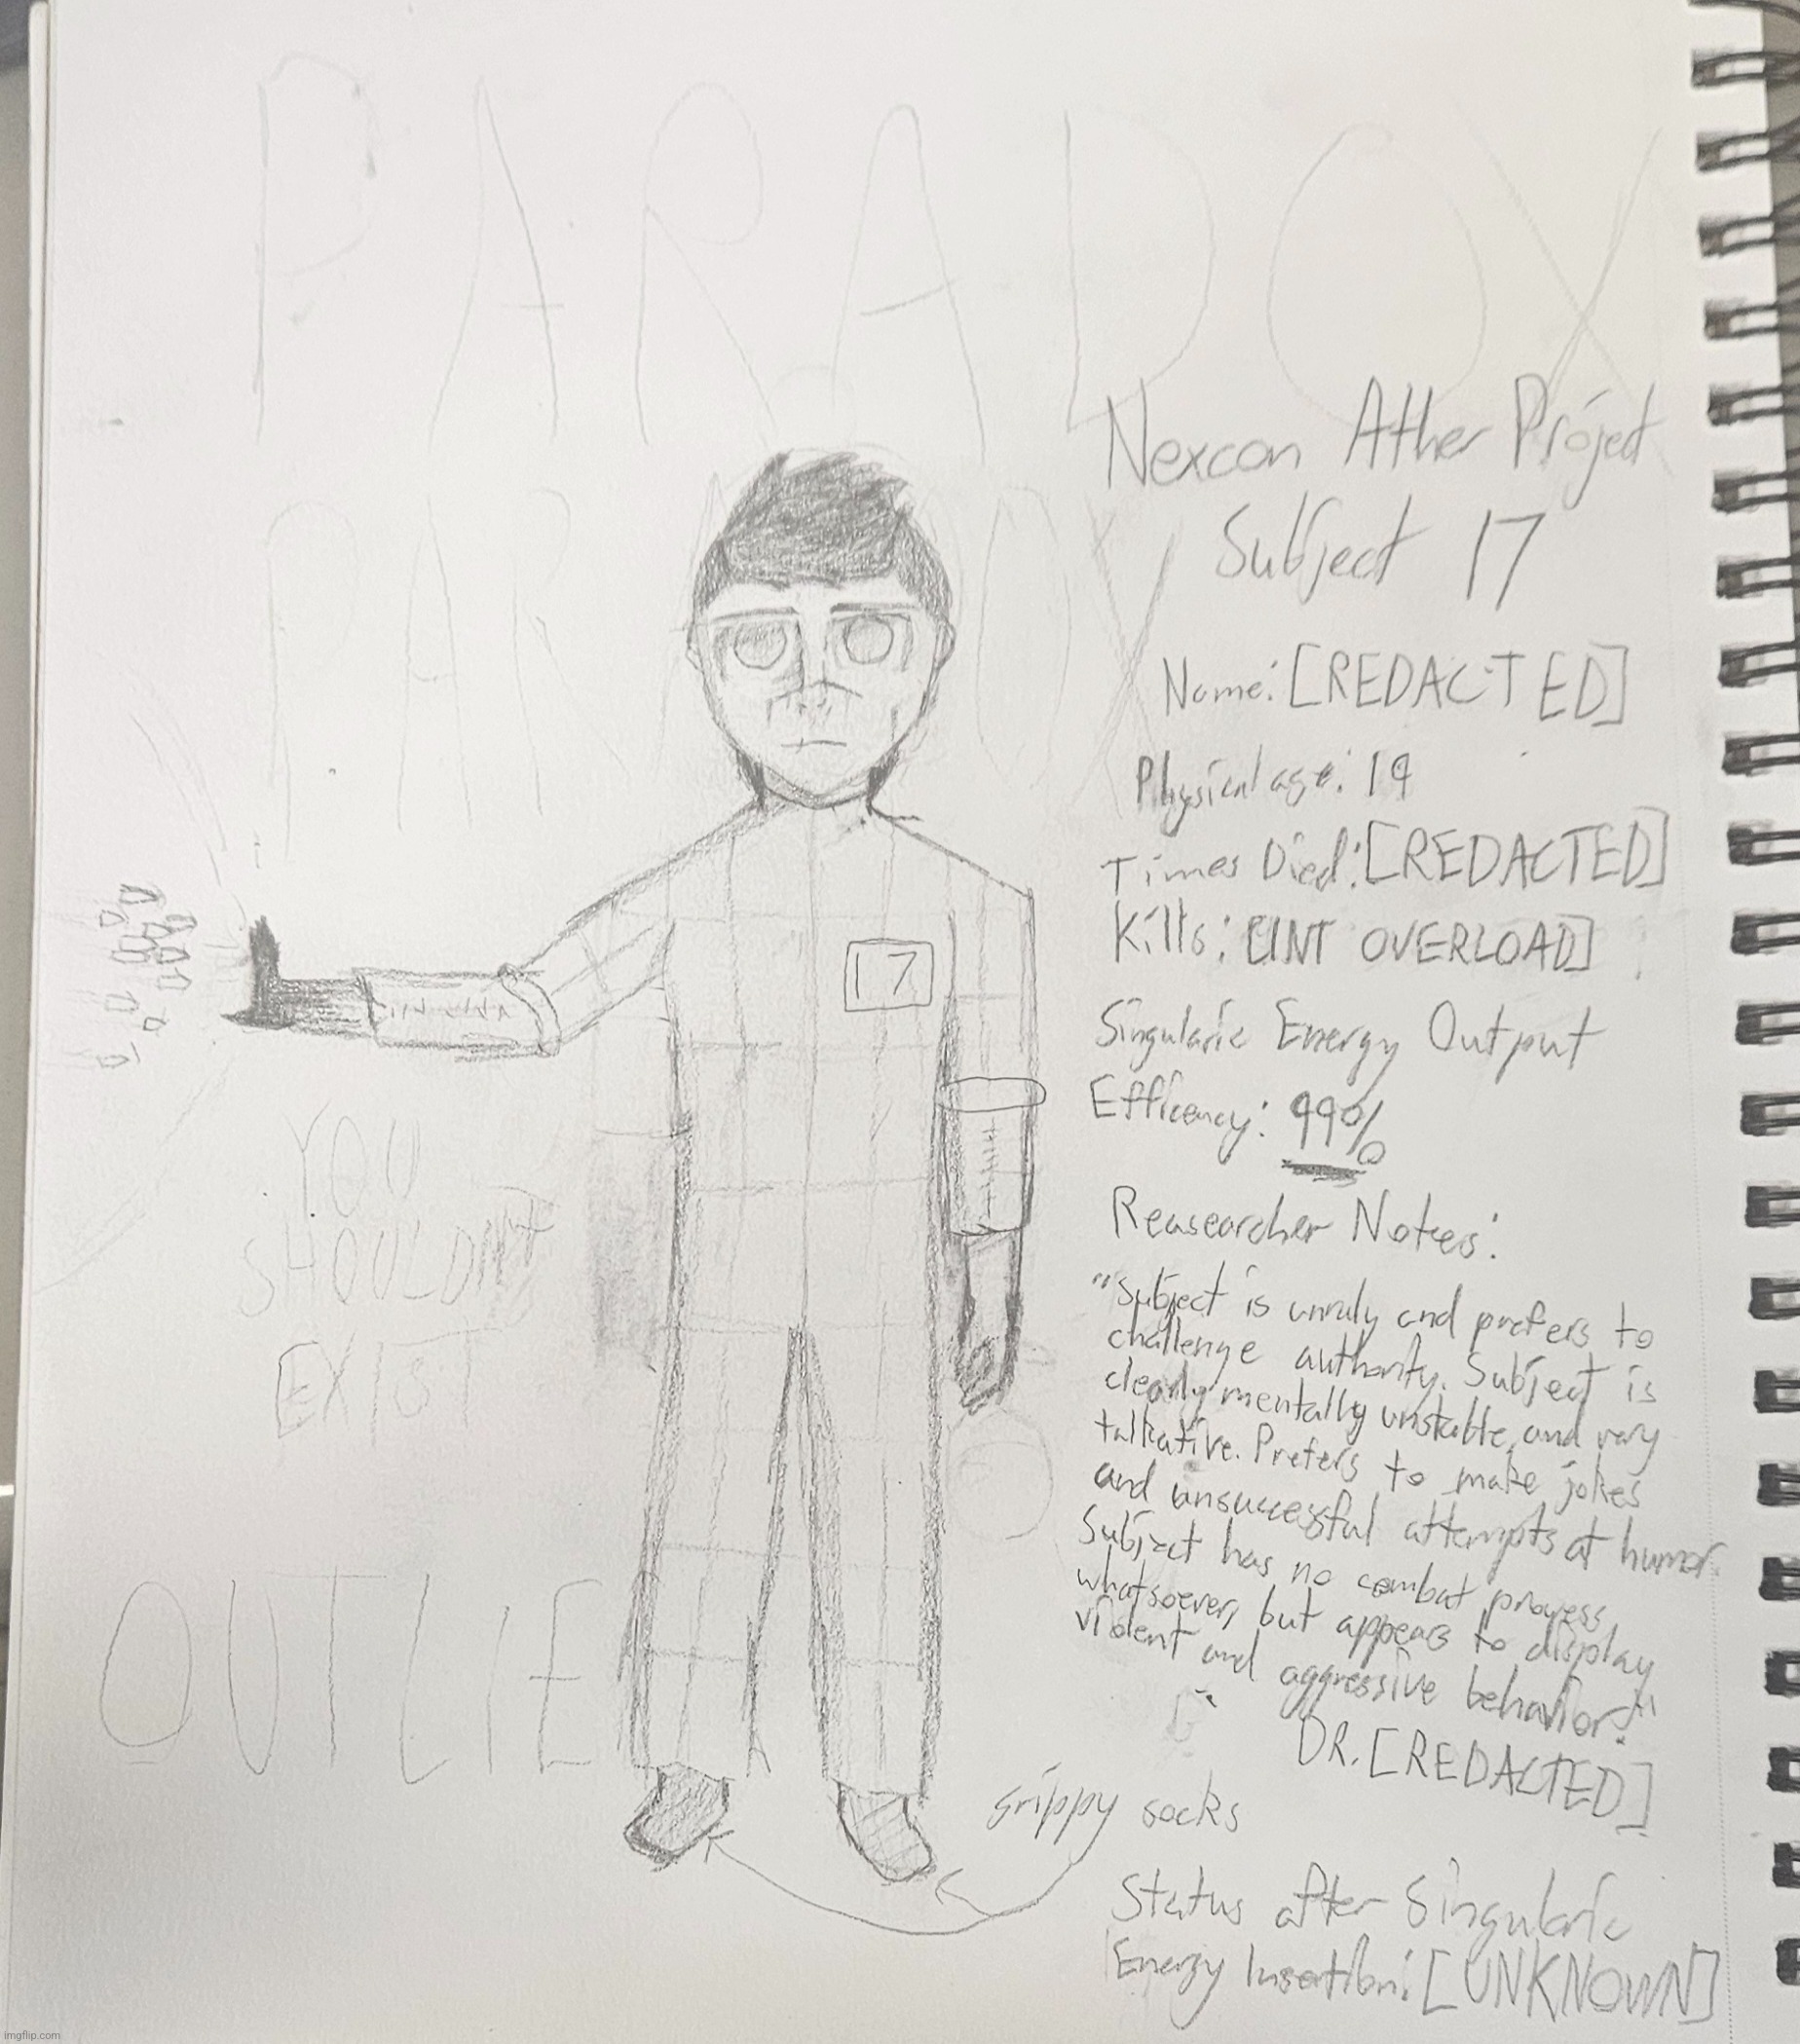 PARADOX
PARADOX
Nexcon Ather Project
Subject 17
Name: [REDACTED]
Physical age: 19
Times Died: [REDACTED]
Kills: [INT OVERLOAD]
17
Singularic Energy Output
Efficency: 99%
YOU
SHOULDN'T
EXIST
Reasearcher Notes:
"Subject is unruly and prefers to
challenge authority. Subject is
clearly mentally unstable, and very
talkative. Prefers to make jokes
and unsuccessful attempts at humor.
Subject has no combat progess
whatsoever, but appears to display
violent and aggressive behavior."
DR. [REDACTED]
OUTLIER
grippy socks
Status after Singularic
Energy Insertion: [UNKNOWN]
imgflip.com